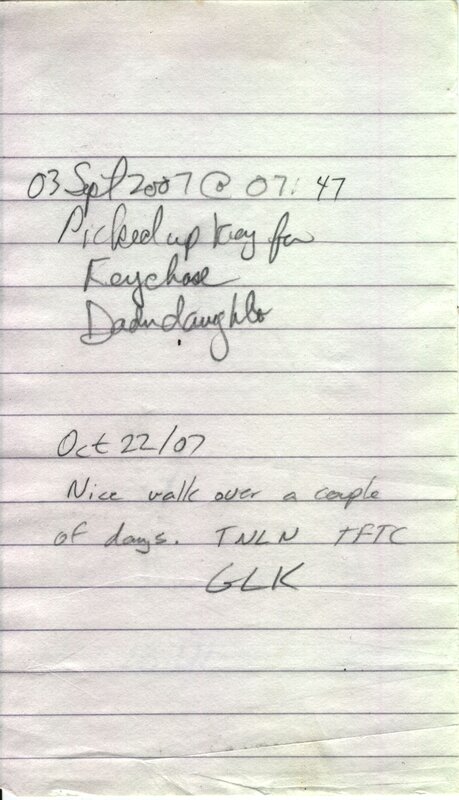 03 Sept 2007 @ 07:47
Picked up key for
Keychase
Dadndaughter
Oct 22/07
Nice walk over a couple
of days. TNLN TFTC
GLK